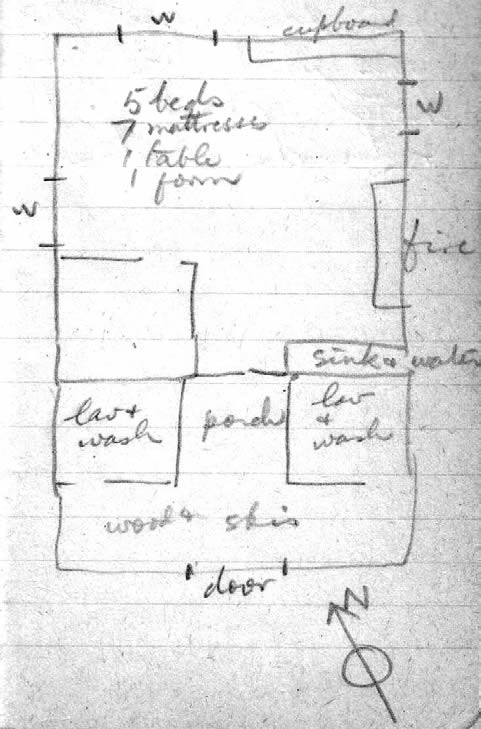 W
cupboard
5 beds
7 mattresses
1 table
1 form
W
W
fire
sink & water
lav &
wash
porch
lav
&
wash
wood & skis
door
N